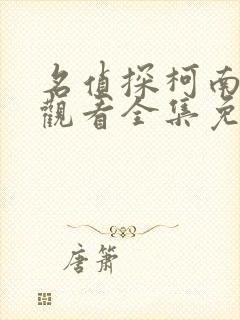 名偵探柯南
觀看全集免
唐簫